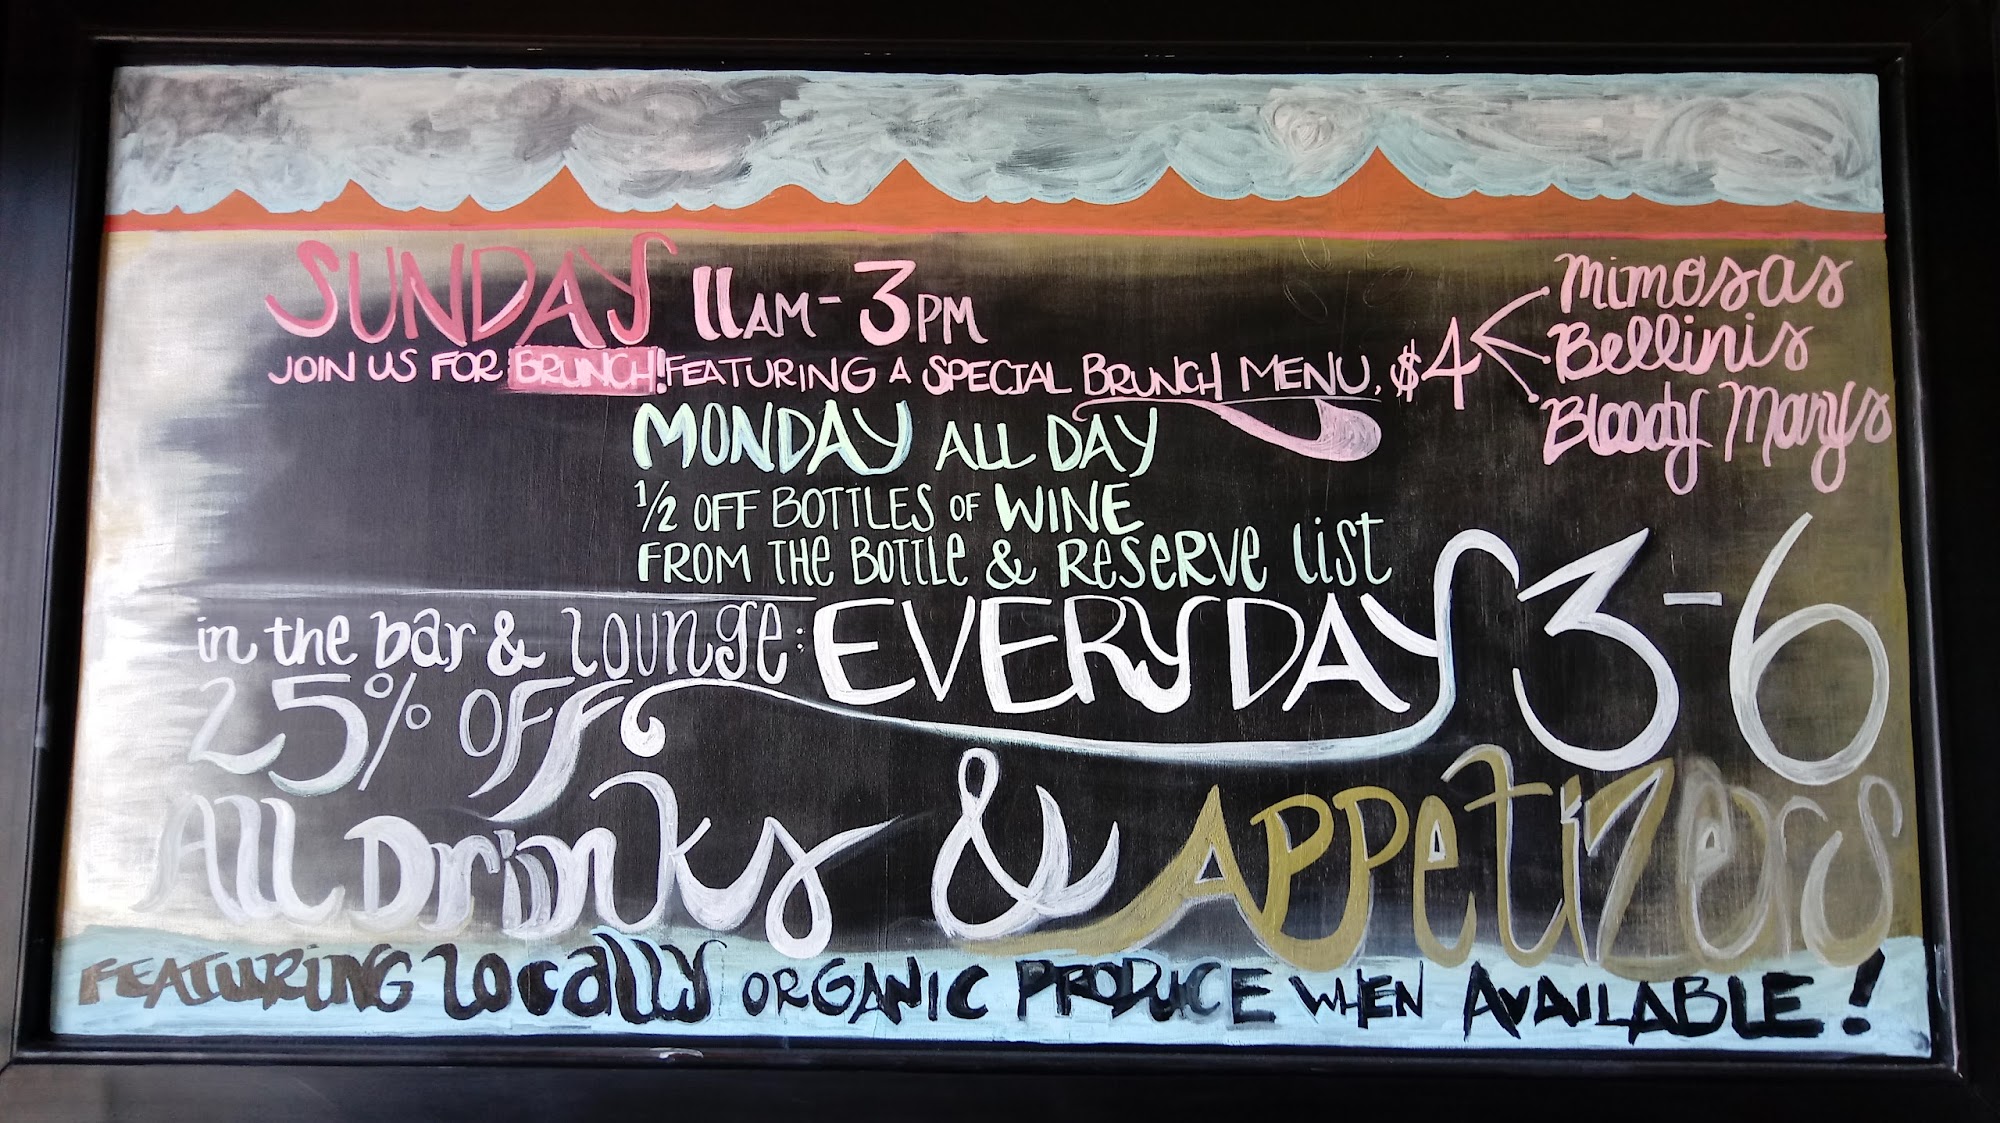 SUNDAY 11AM - 3PM
JOIN US FOR BRUNCH! FEATURING A SPECIAL BRUNCH MENU, $4
Mimosas
Bellinis
Bloody Marys
MONDAY ALL DAY
1/2 OFF BOTTLES OF WINE
FROM THE BOTTLE & RESERVE LIST
in the bar & lounge: EVERYDAY 3-6
25% OFF
All Drinks & Appetizers
FEATURING locally ORGANIC PRODUCE WHEN AVAILABLE!